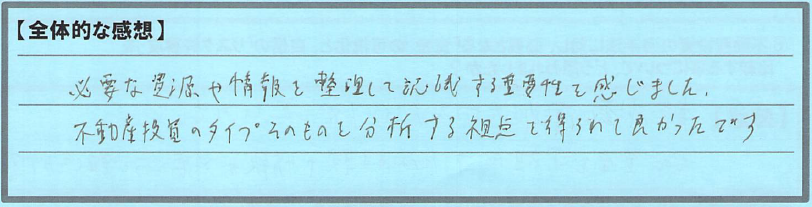 【全体的な感想】
必要な資源や情報を整理して認識する重要性を感じました。
不動産投資のタイプそのものを分析する視点を得られて良かったです